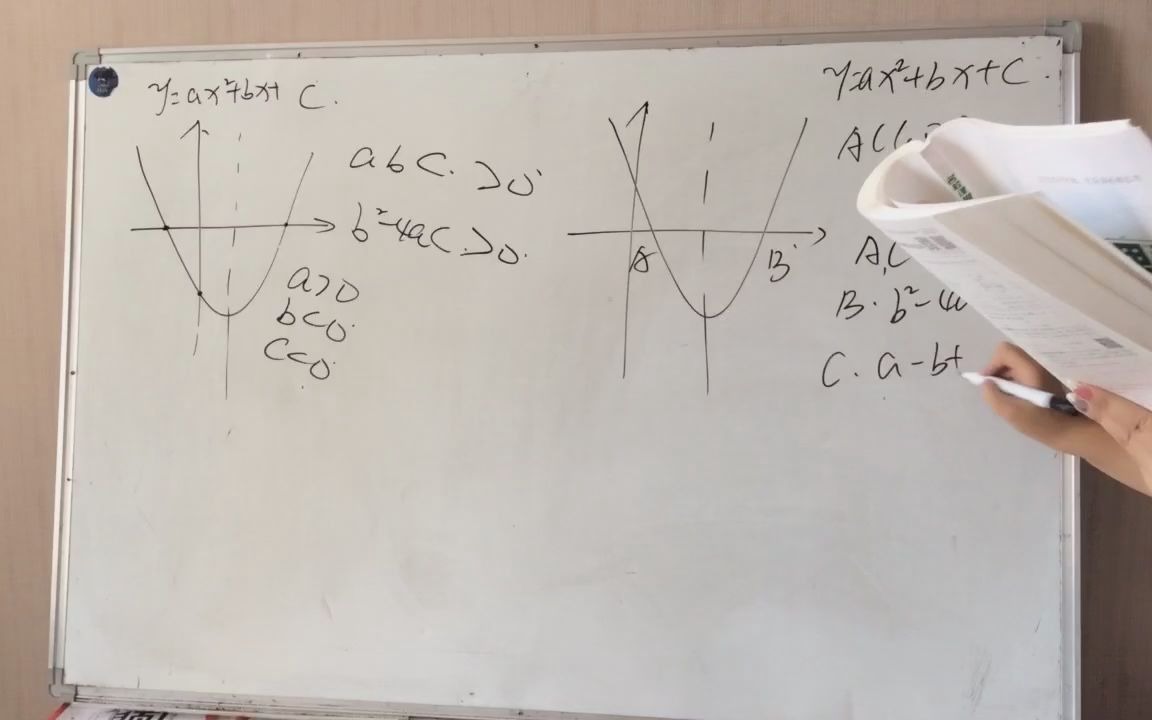 y=ax²+bx+c.
abc.>0
b²-4ac.>0.
a>0
b<0.
c<0.
A
B
y=ax²+bx+c.
A(
A.
B. b²-4a
C. a-b+